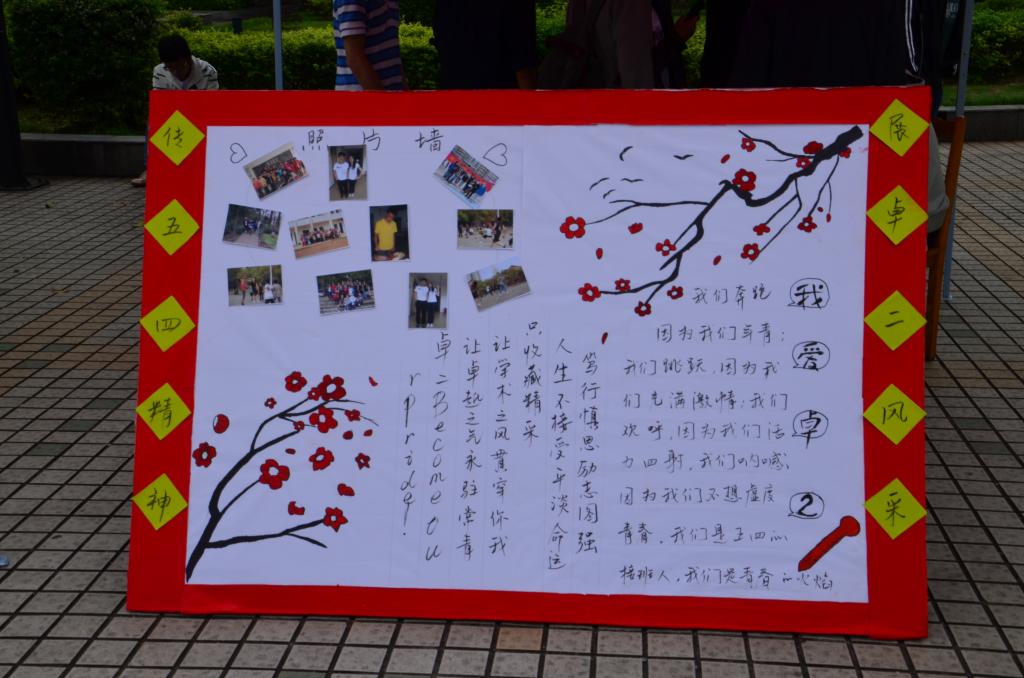 传五四精神
展卓二风采
照片墙
我爱卓2
我们奔跑
因为我们年青;
我们跳跃,因为我
们充满激情;我们
欢呼,因为我们活
力四射,我们呐喊;
因为我们不想虚度
青春,我们是五四的
接班人,我们是青春的火焰
笃行慎思励志图强
人生不接受平淡命运
只收藏精采
让学术之风贯穿你我
让卓越之气永驻常青
卓二Become ou
r pride!